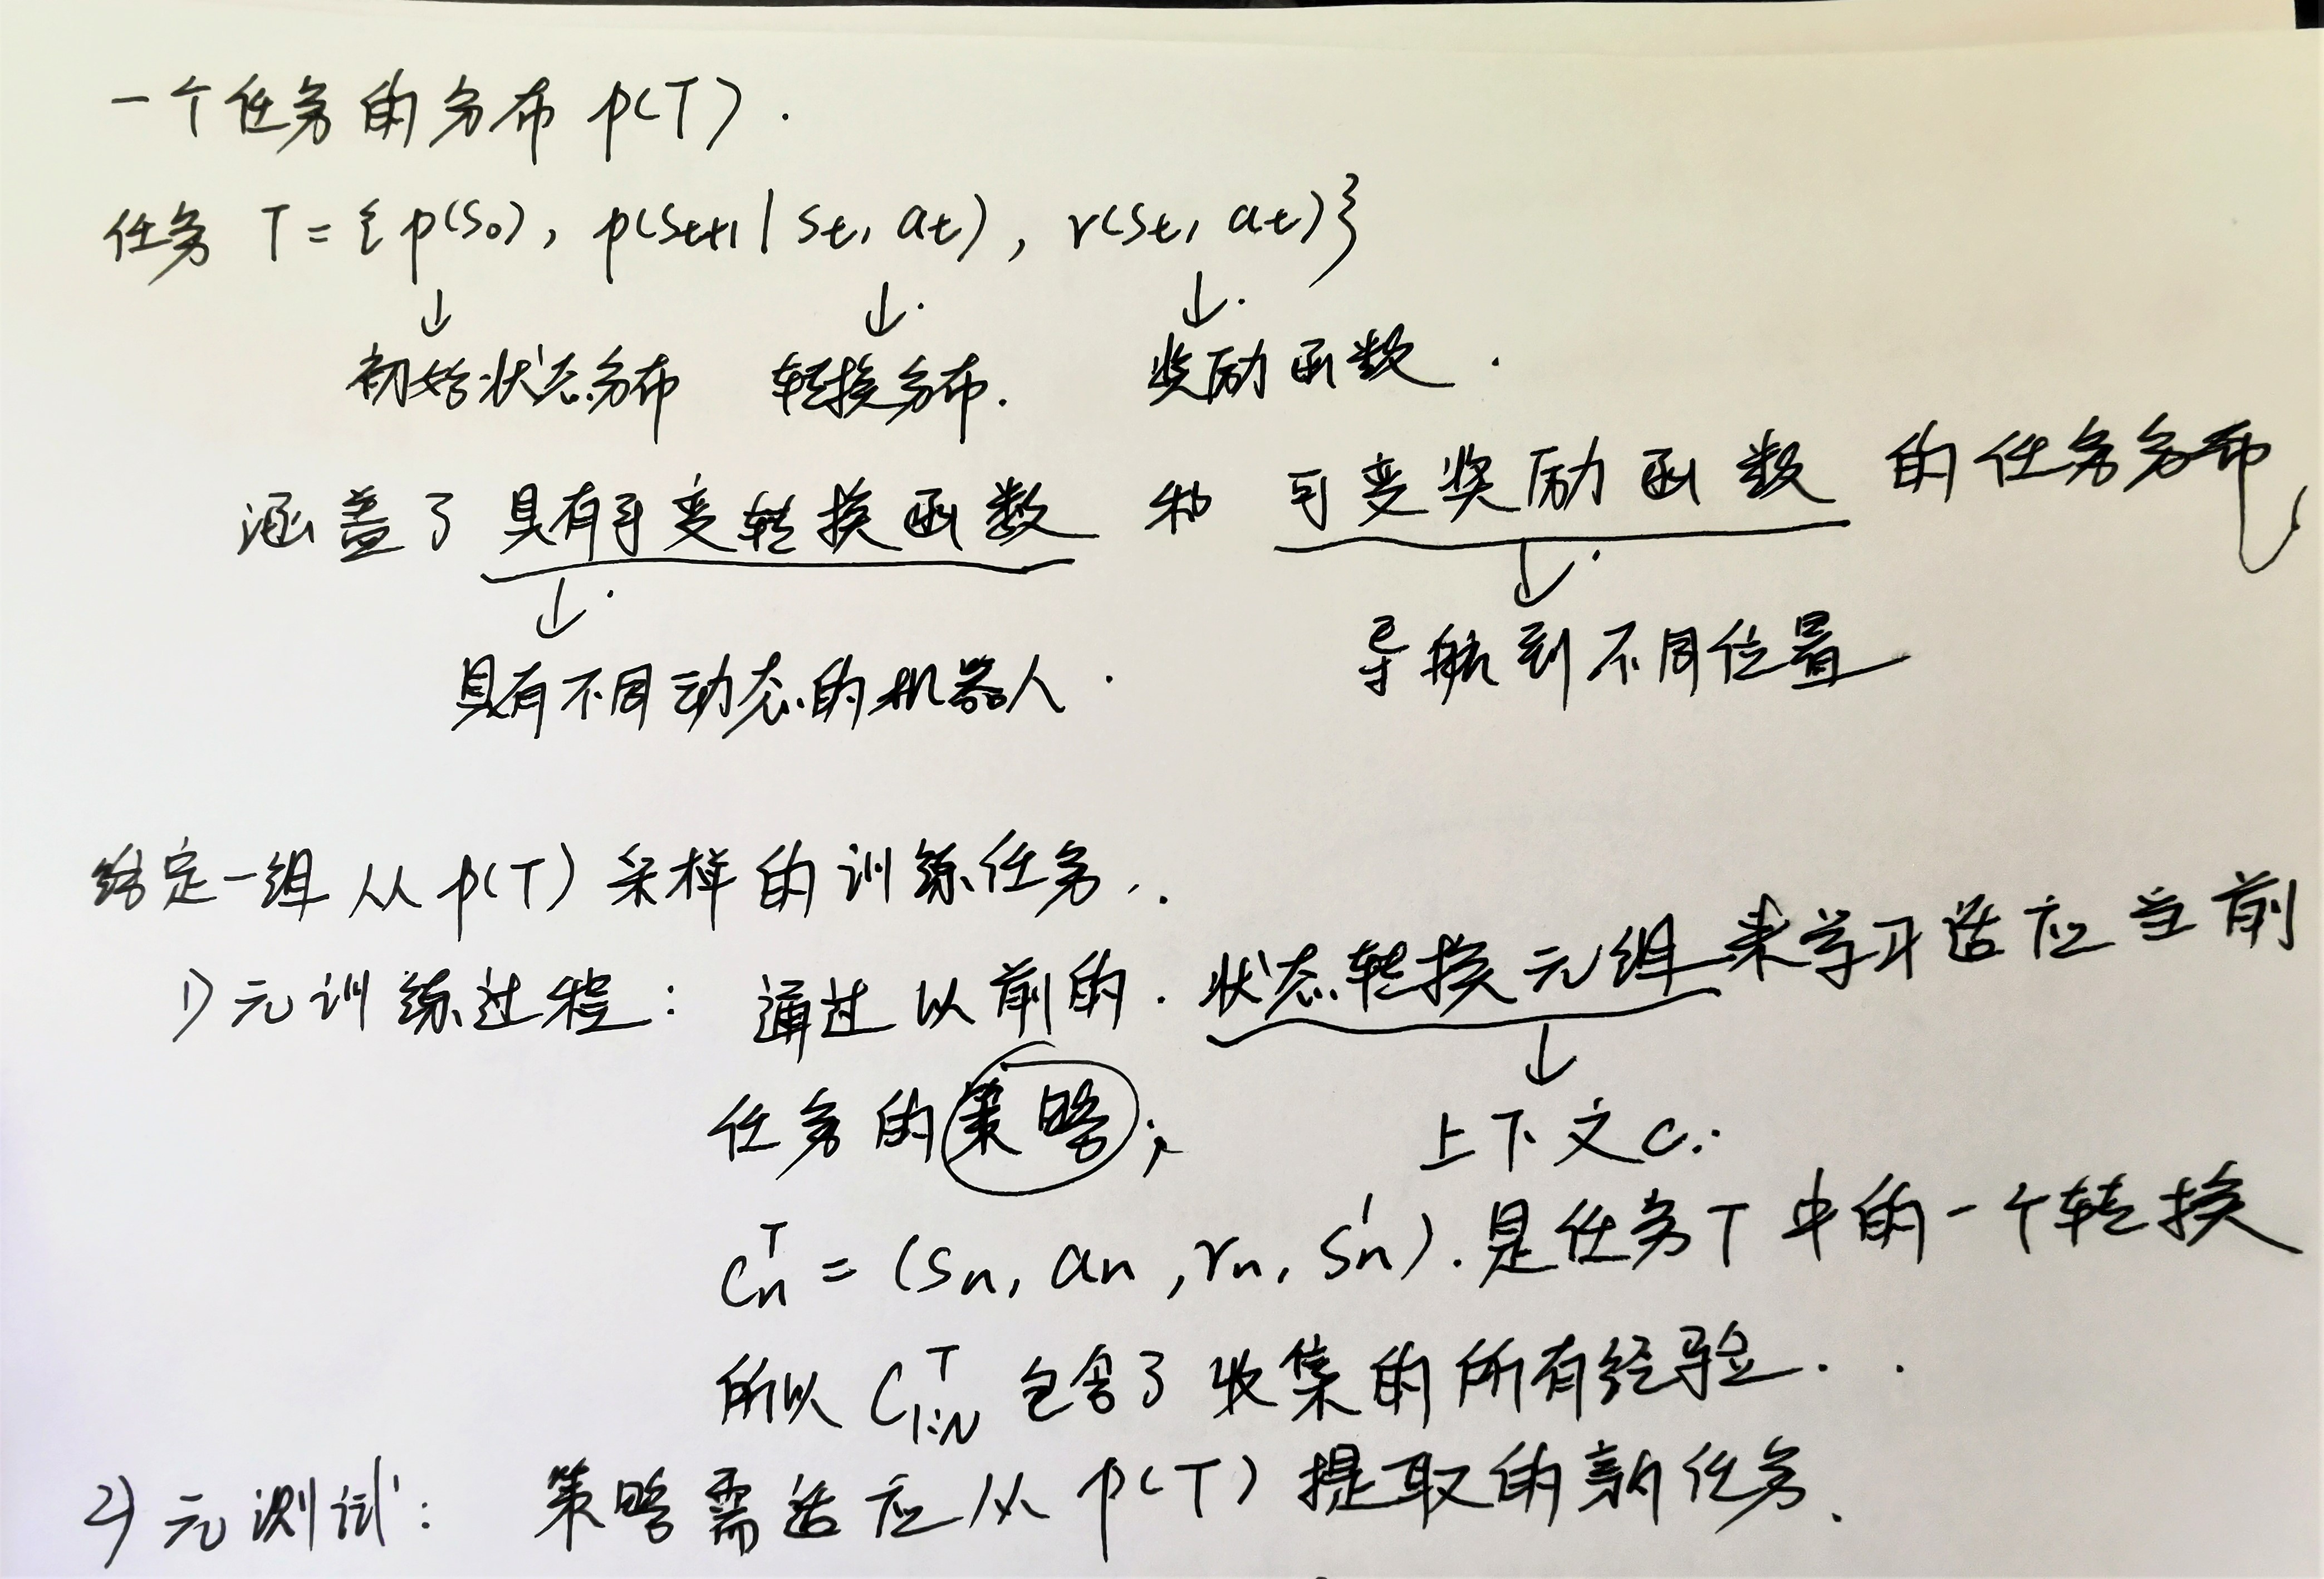 一个任务的分布 p(T).
任务 T = { p(s₀), p(sₜ₊₁ | sₜ, aₜ), r(sₜ, aₜ)}
↓ ↓. ↓.
初始状态分布 转换分布. 奖励函数.
涵盖了具有可变转换函数 和 可变奖励函数 的任务分布
↓. ↓.
具有不同动态的机器人. 导航到不同位置
给定一组从 p(T) 采样的训练任务,.
1) 元训练过程: 通过以前的.状态转换元组来学习适应当前
↓
任务的策略; 上下文 c.
cₙᵀ = (sₙ, aₙ, rₙ, sₙ'). 是任务T中的一个转换
所以 C₁:ɴᵀ 包含了收集的所有经验..
2) 元测试: 策略需适应从 p(T) 提取的新任务.